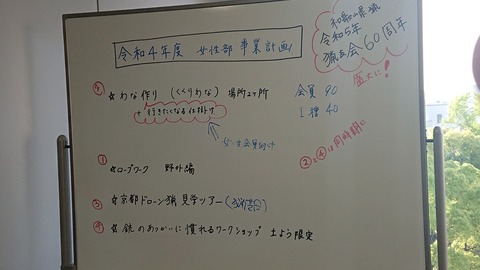 令和4年度 女性部 事業計画
和歌山県猟
令和5年
猟友会60周年
盛大に!
④ ☆わな作り (くくりわな) 場所2ヶ所
+行きたくなる仕掛け
会員 90
工櫓 40
女性会員向け
① ☆ロープワーク 野外編
②と④は同時期に
③ ☆京都ドローン猟 見学ツアー
④ ☆銃のあつかいに慣れるワークショップ 土よう限定